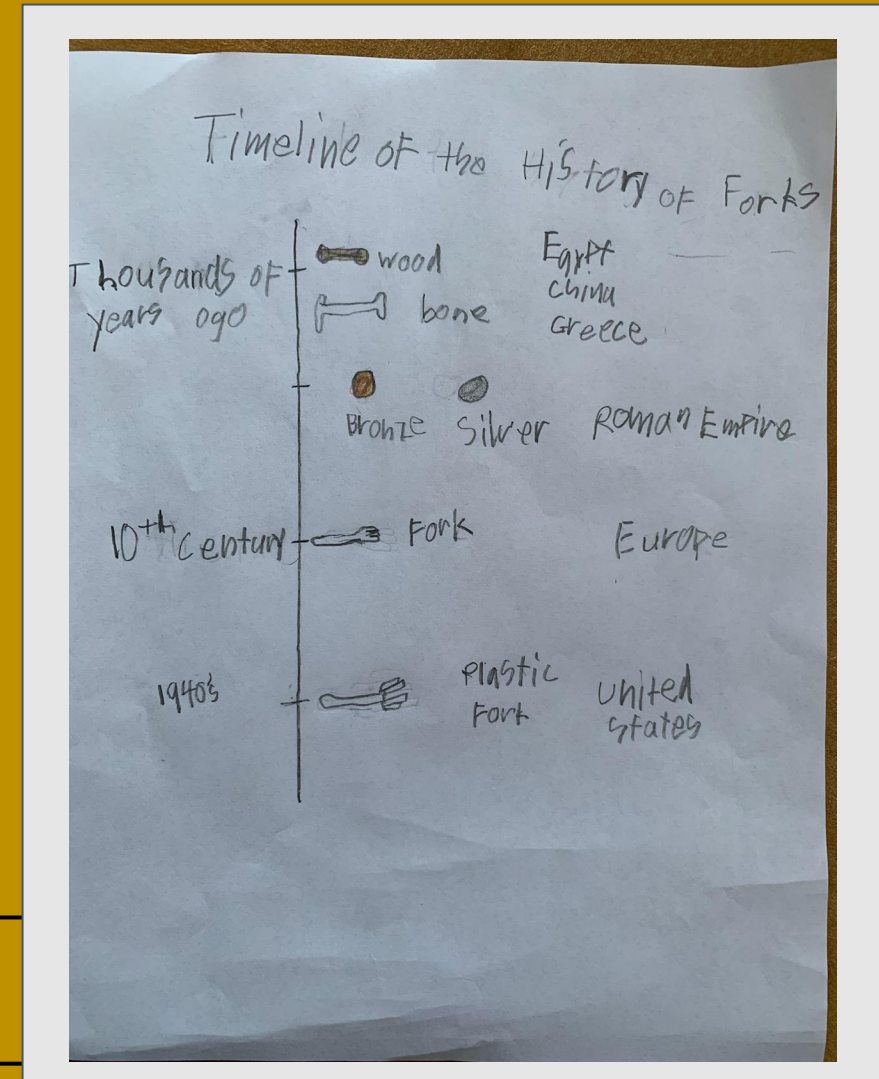 Timeline of the History of Forks
Thousands of
years ago
wood
bone
Egypt
China
Greece
Bronze Silver Roman Empire
10th century Fork Europe
1940's
Plastic
Fork
United
States